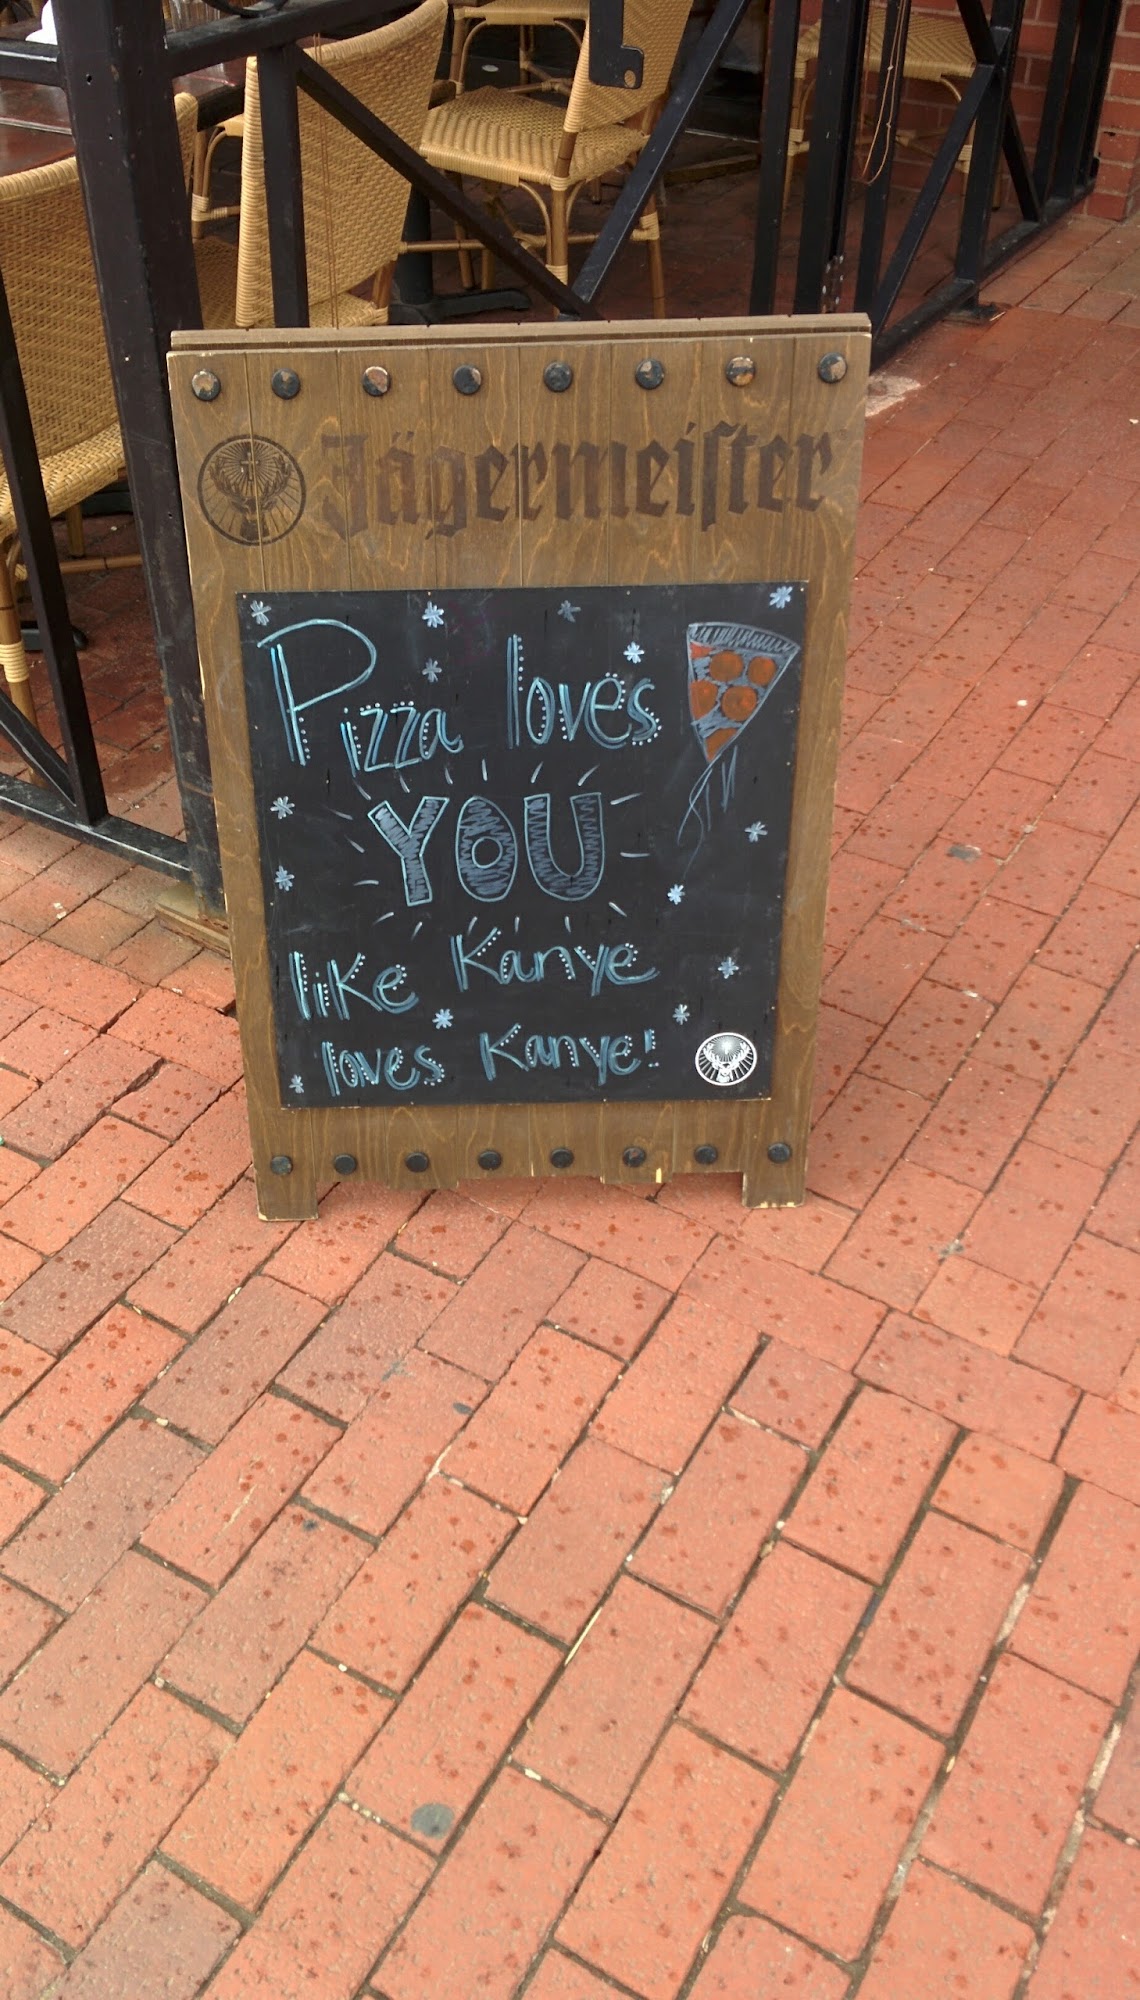 Jägermeiſter
Pizza loves
YOU
like Kanye
loves Kanye!